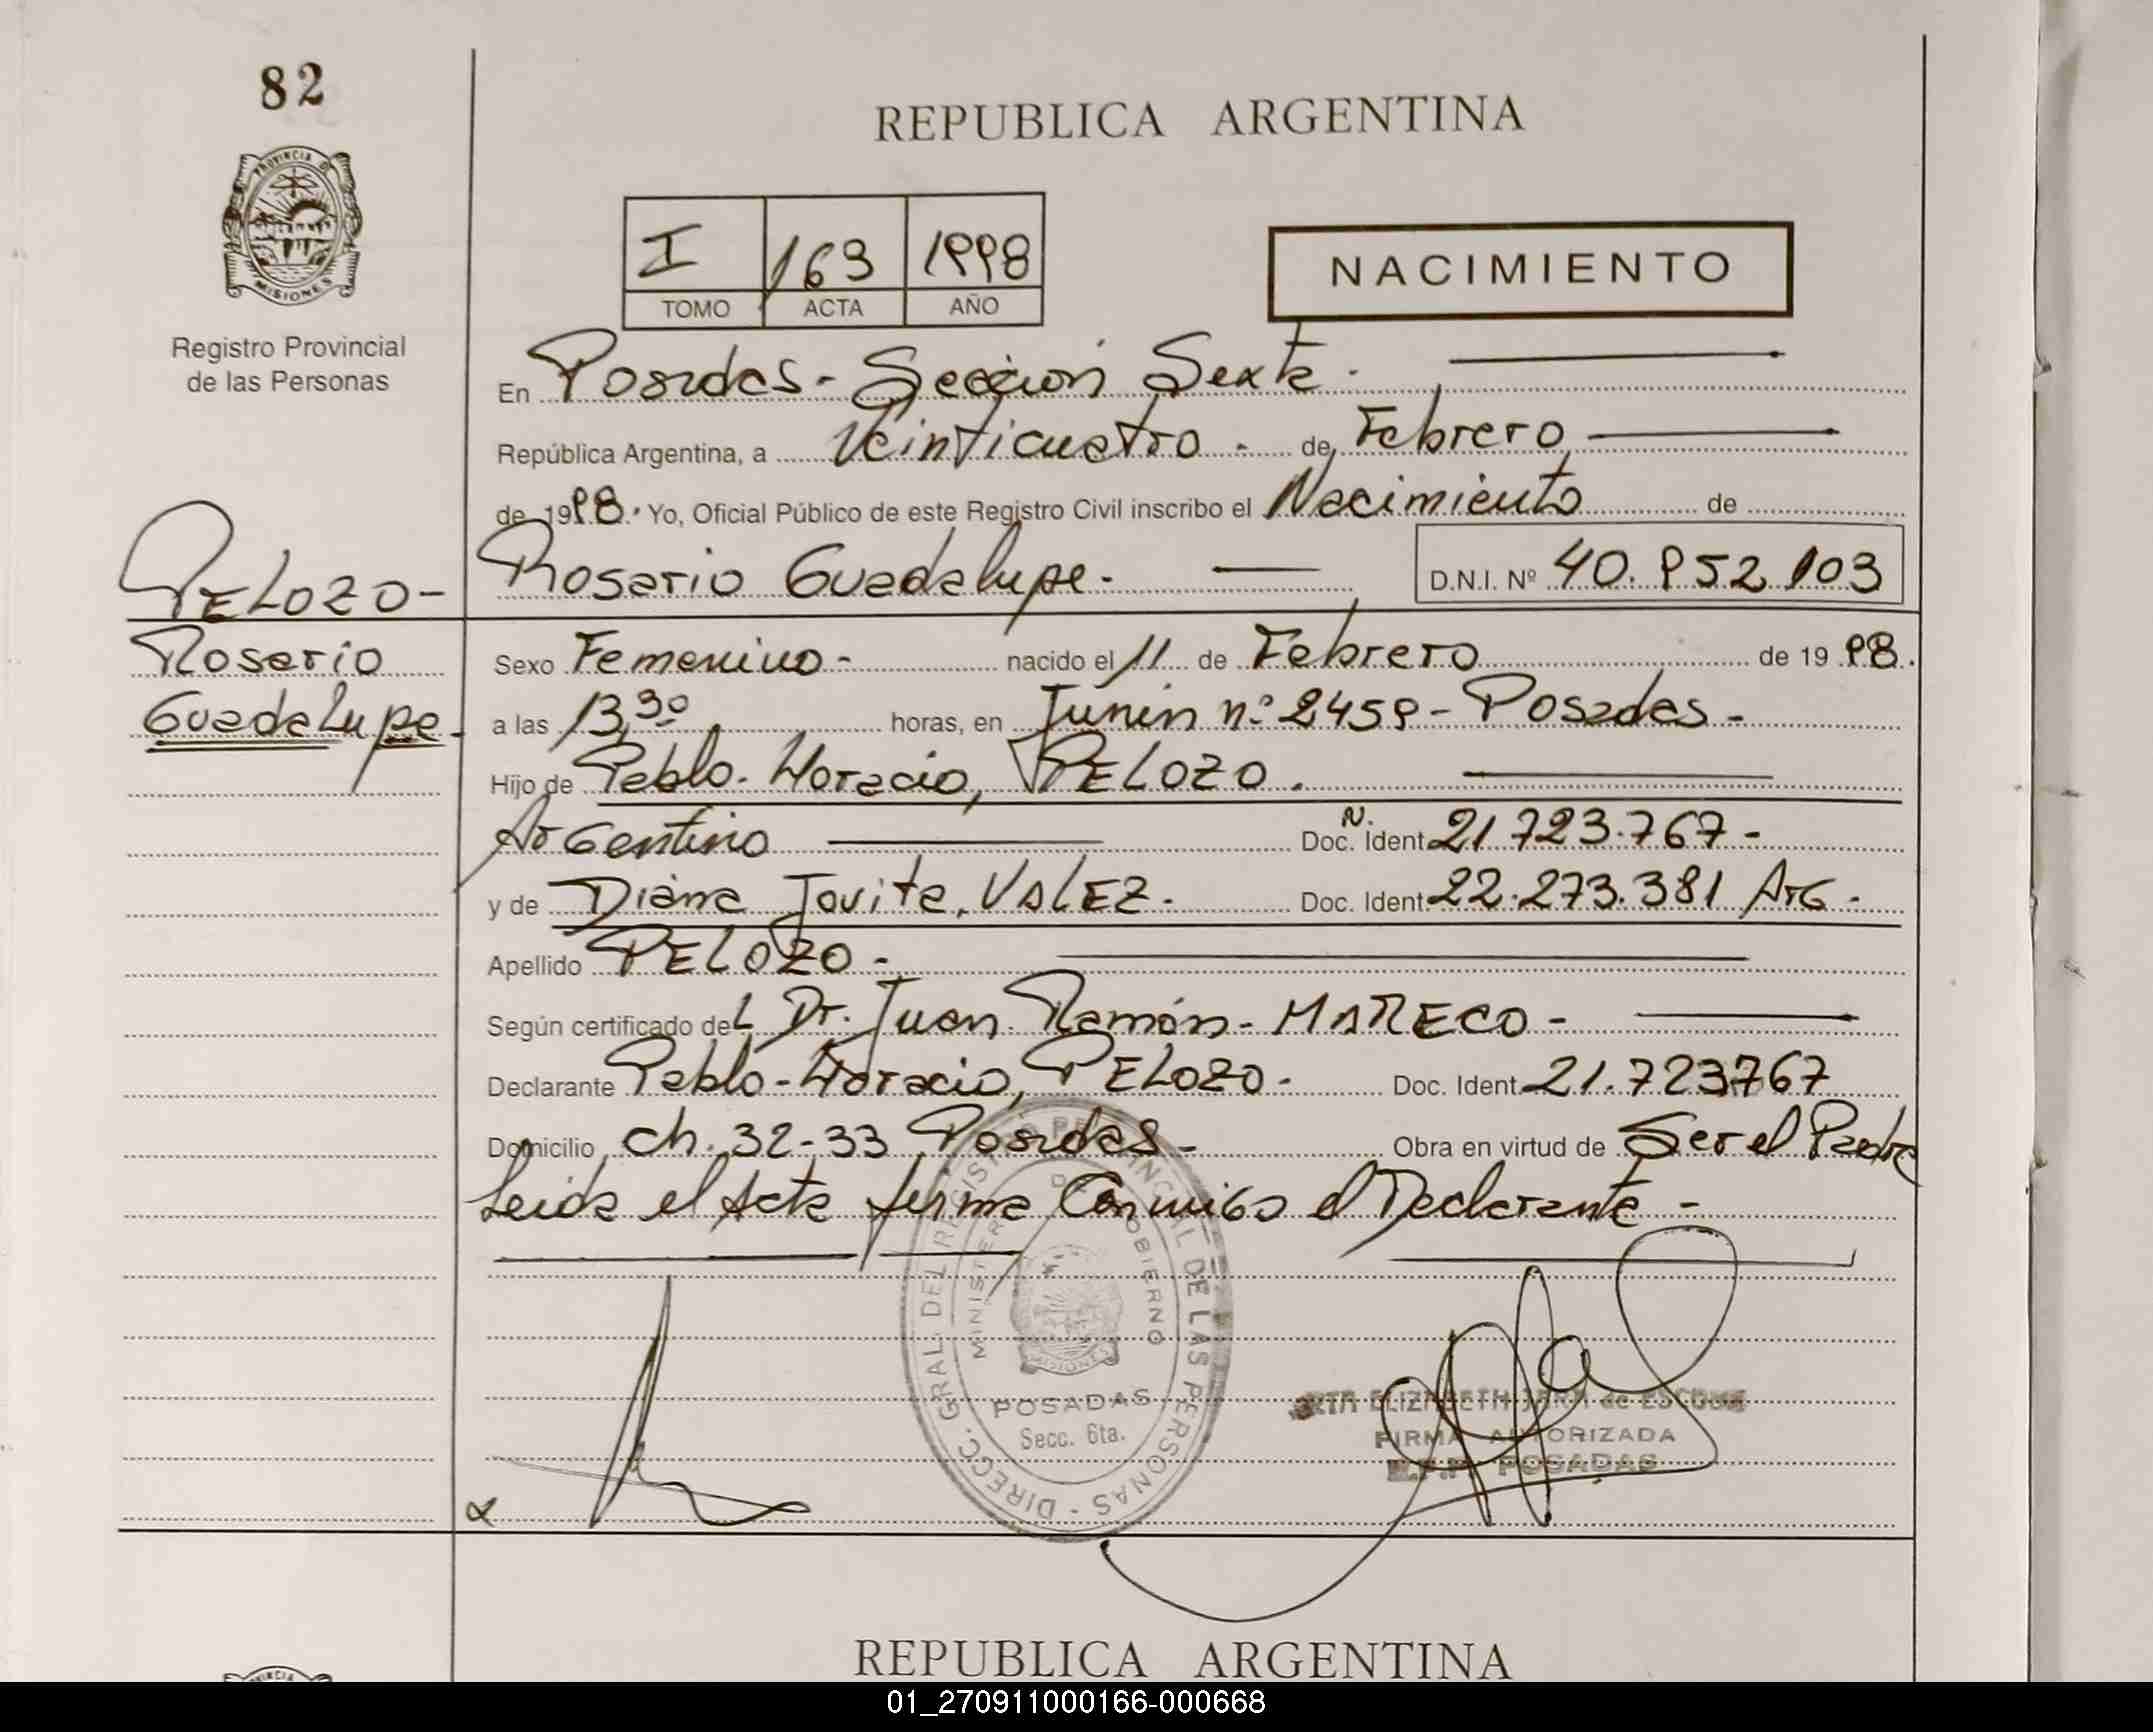 82
REPUBLICA ARGENTINA
PROVINCIA D
MISIONES
Registro Provincial
de las Personas
I 163 1998
TOMO ACTA AÑO
NACIMIENTO
En Posadas - Sección Sexta.
República Argentina, a Veinticuatro - de Febrero
de 1998. Yo, Oficial Público de este Registro Civil inscribo el Nacimiento de
Rosario Guadalupe - D.N.I. Nº 40.952.103
PELOZO -
Rosario
Guadalupe -
Sexo Femenino - nacido el 11 de Febrero de 1998.
a las 13,30 horas, en Junin nº 2459 - Posadas -
Hijo de Pablo Horacio, PELOZO.
Argentino N. Doc. Ident 21.723.767 -
y de Diana Jovita, VALEZ. Doc. Ident 22.273.381 Arg -
Apellido PELOZO -
Según certificado del Dr. Juan Ramón - MARECO -
Declarante Pablo - Horacio, PELOZO - Doc. Ident 21.723767
Domicilio ch. 32-33 Posadas - Obra en virtud de Ser el Padre
Leida el Acta firma Conmigo el Declarante -
DIRECC. GRAL. DEL REGISTRO PROVINCIAL DE LAS PERSONAS -
MINISTERIO DE GOBIERNO
MISIONES
POSADAS
Secc. 6ta.
ELIZABETH JARA de
FIRMA AUTORIZADA
POSADAS
REPUBLICA ARGENTINA
01_270911000166-000668